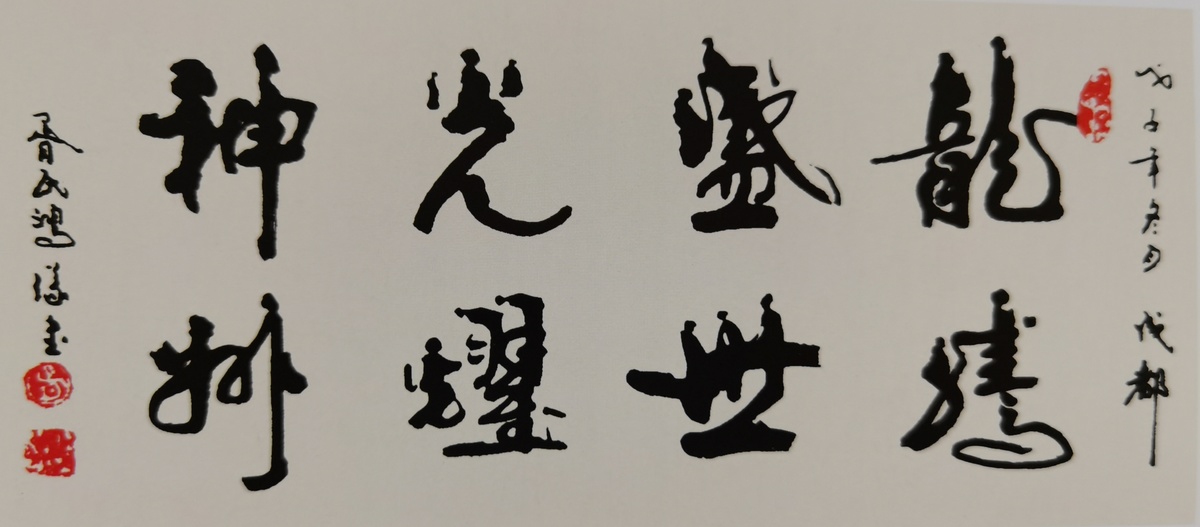 戊子年冬月 成都
龍騰
盛世
光耀
神州
胥民鴻緣书